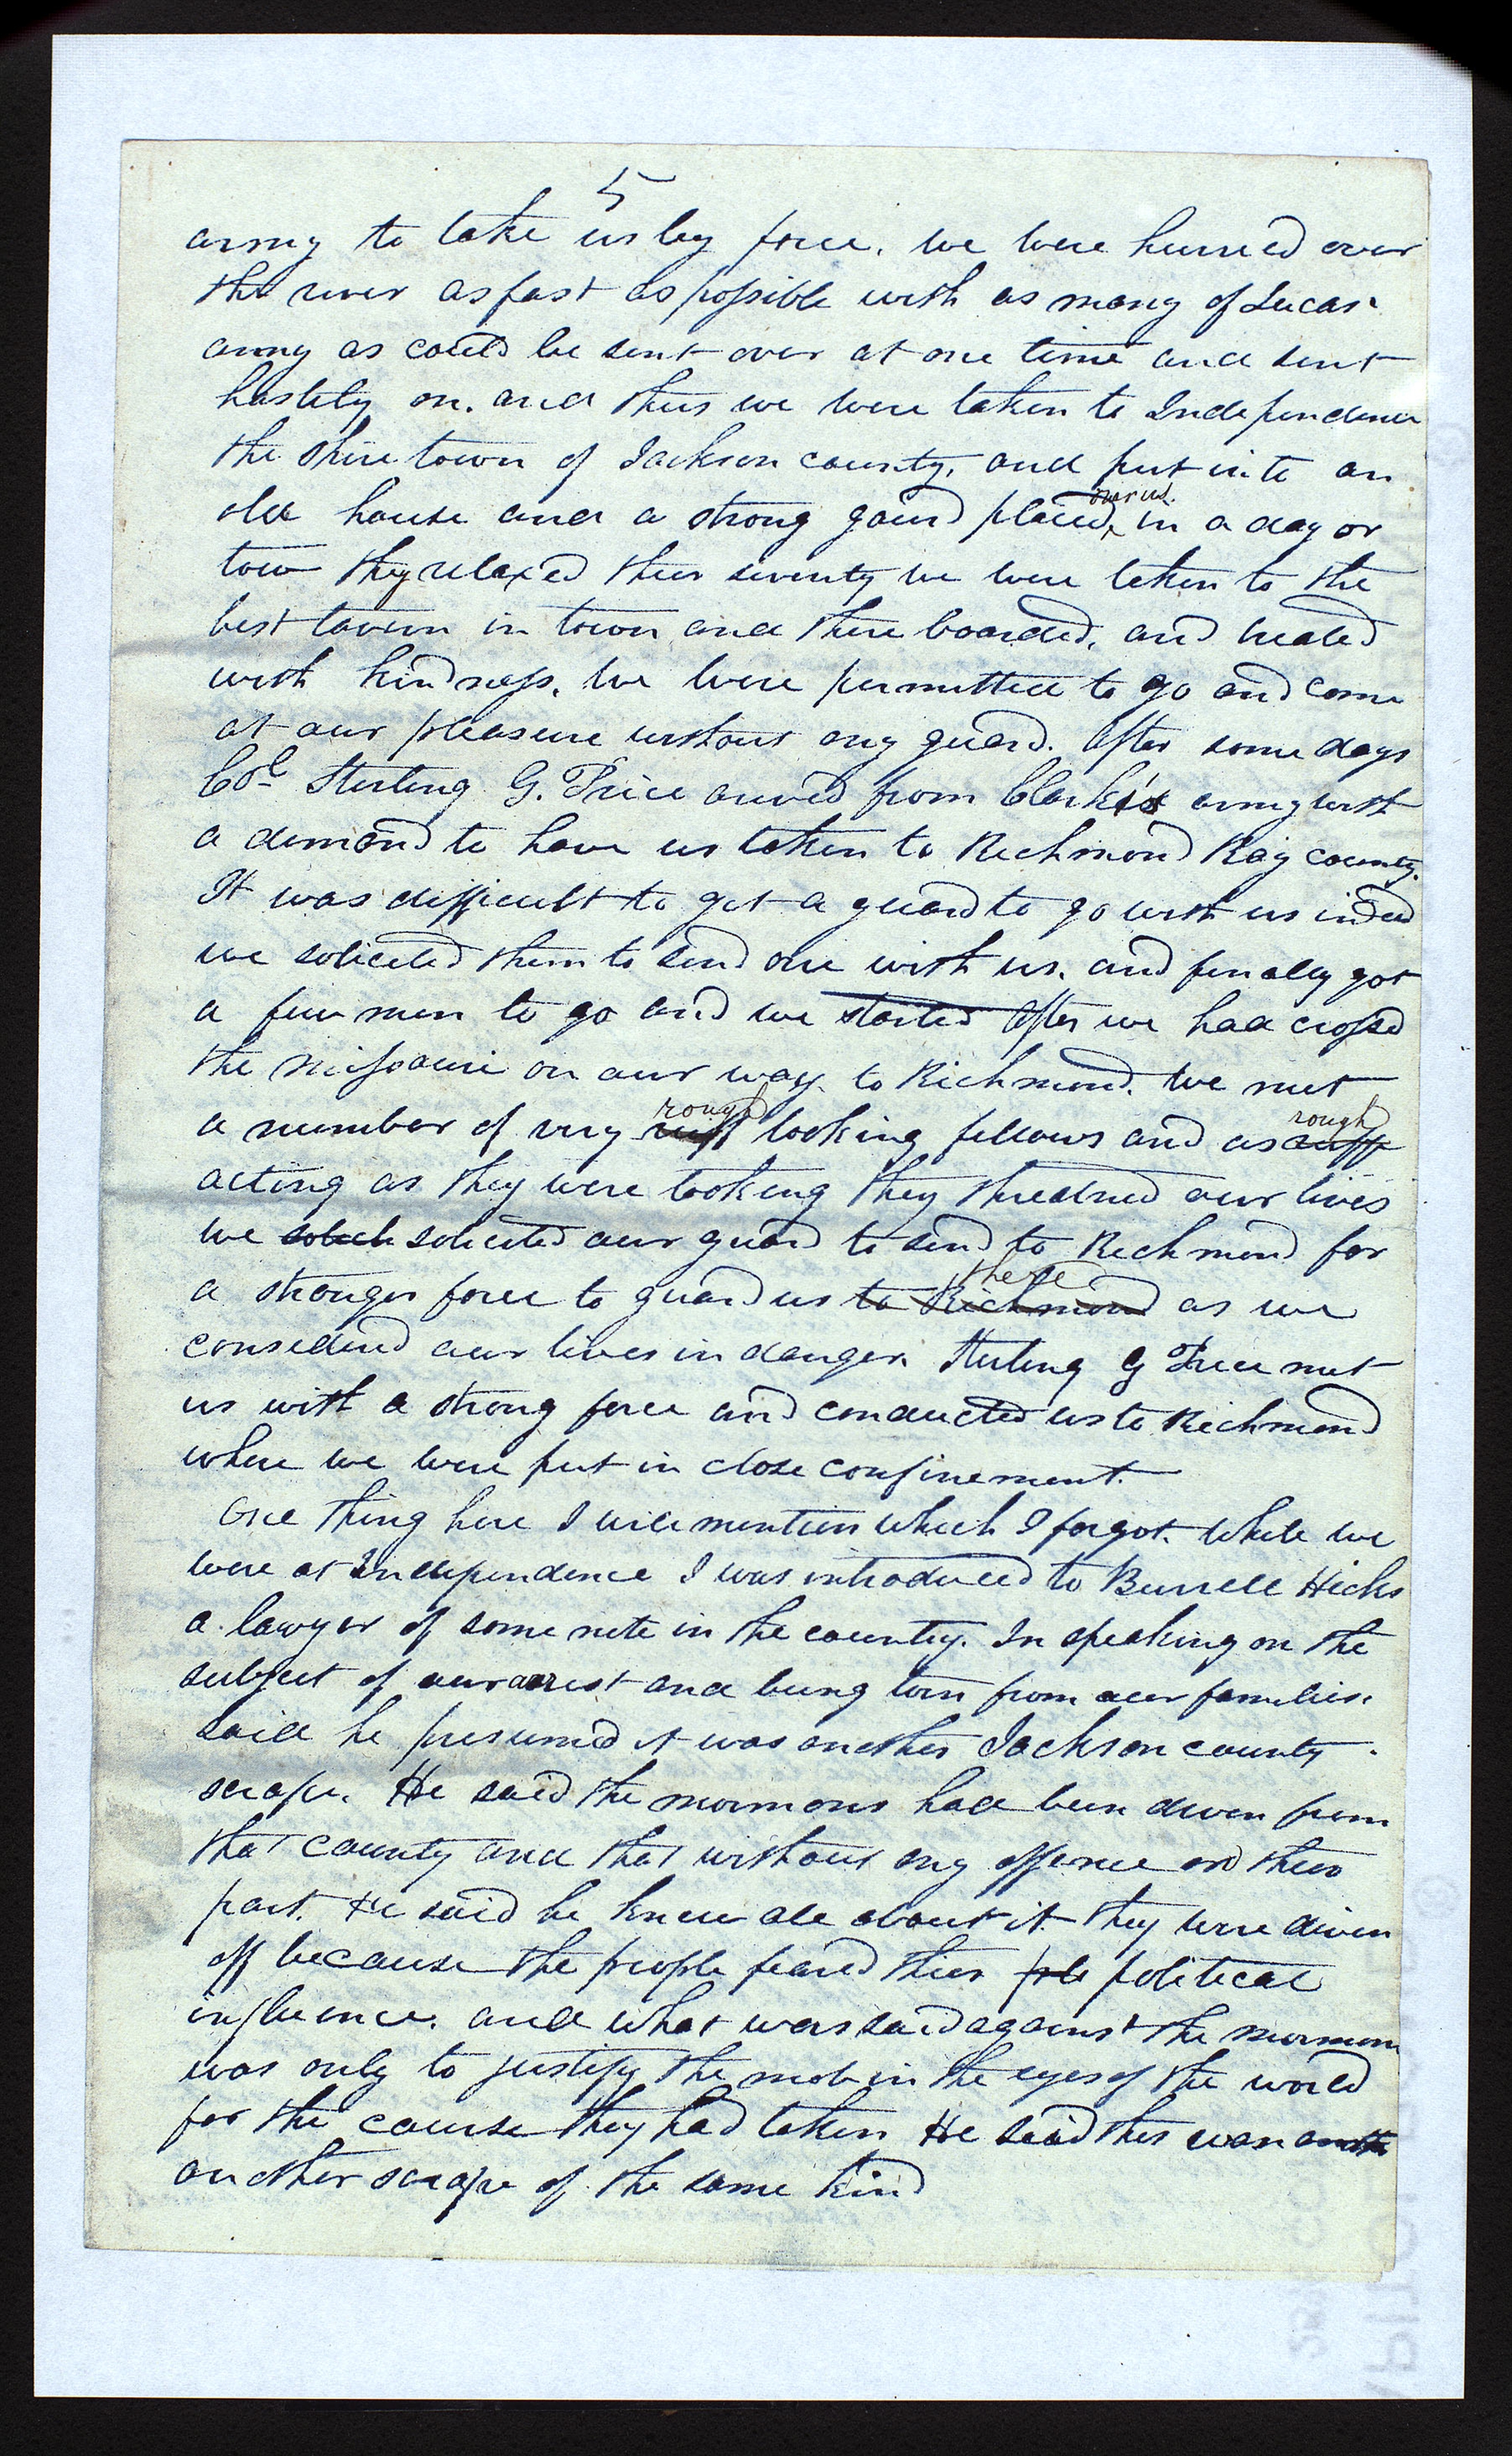 5
army to take us by force, we were hurried over
the river as fast as possible with as many of Lucas'
army as could be sent over at one time and sent
hastily on. and thus we were taken to Independence
the shire town of Jackson county, and put into an
old house and a strong gaurd placed over us. in a day or
tow they relaxed their severity we were taken to the
best tavern in town and there boarded, and treated
with kindness. we were permitted to go and come
at our pleasure without any guard. After some days
Col Sterling G. Price arived from Clark's army with
a demand to have us taken to Richmond Ray county.
It was difficult to get a guard to go with us indeed
we solicited them to send one with us, and finally got
a few men to go and we started After we had crossed
the Missouri on our way to Richmond, we met
a number of very ruff rough looking fellows and as ruff rough
acting as they were looking they threatned our lives
we solech solicited our guard to send to Richmond for
a stronger force to guard us to Richmond there as we
considered our lives in danger. Sterling G Price met
us with a strong force and conducted us to Richmond
where we were put in close confinement.
One thing here I will mention which I forgot. while we
were at Independence I was introduced to Burrell Hicks
a lawyer of some note in the county. In speaking on the
subject of our arrest and being torn from our families.
said he presumed it was another Jackson county
scrape. He said the mormons had been driven from
that county and that without any offence on their
part. He said he knew all about it they were driven
off because the people feared their pole political
influence. and what was said against the mormons
was only to justify the mob in the eyes of the world
for the course they had taken. He said this was anoth
another scrape of the same kind